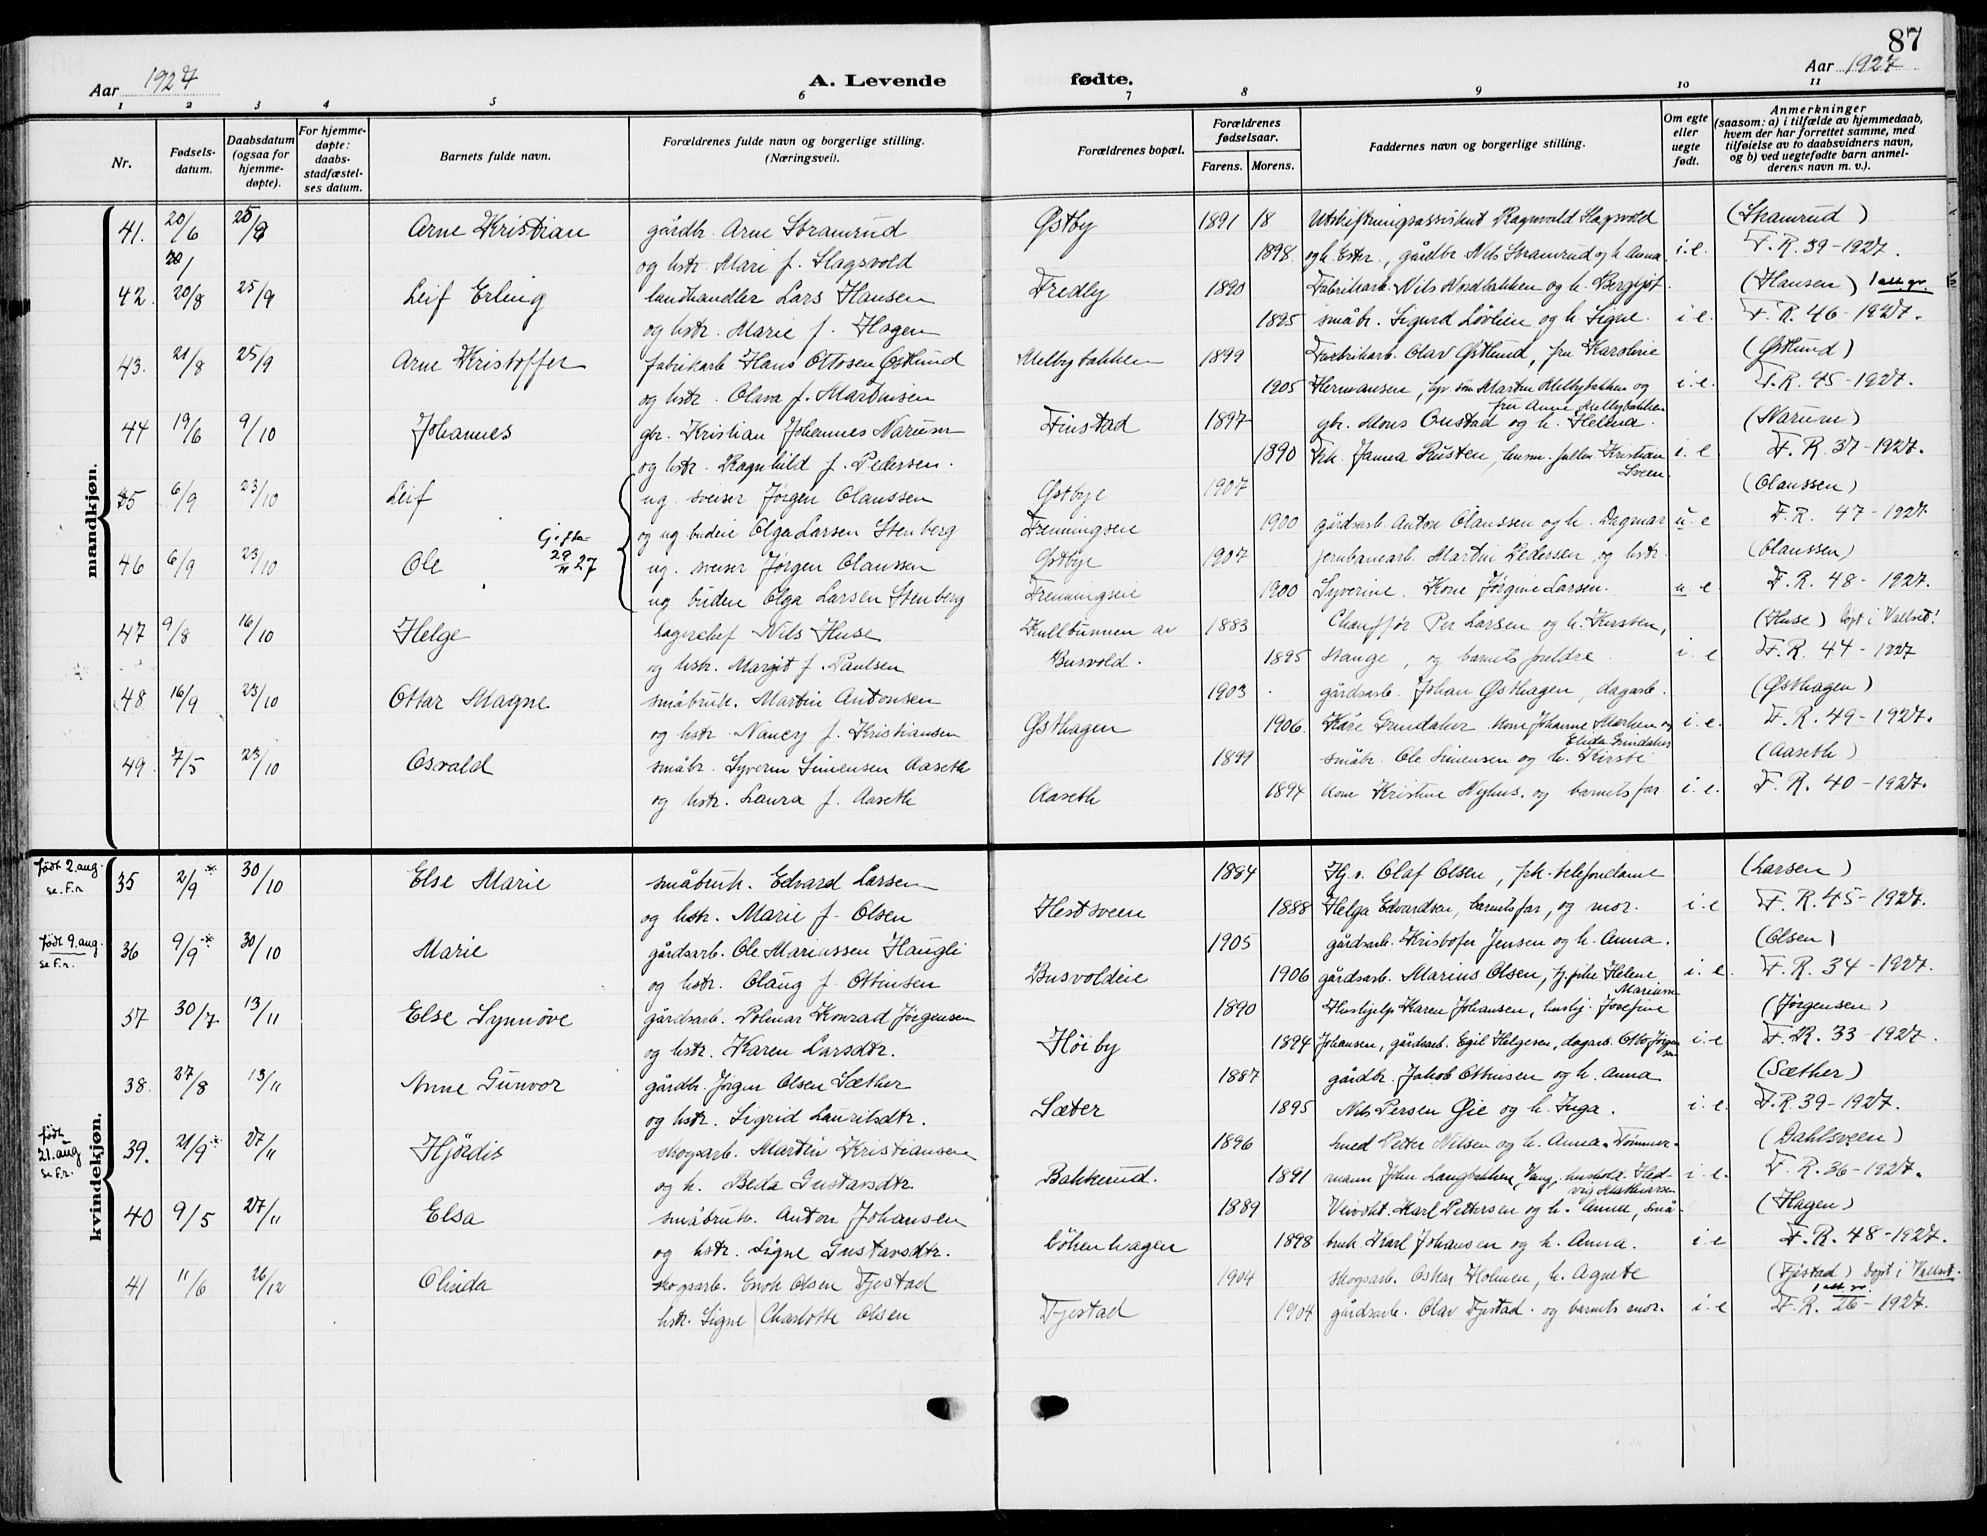 87
Aar 1927
A. Levende fødte.
Aar 1927
1 2 3 4 5 6 7 8 9 10 11
Nr.
Fødselsdatum.
Daabsdatum (ogsaa for hjemmedøpte).
For hjemmedøpte: daabsstadfæstelses datum.
Barnets fulde navn.
Forældrenes fulde navn og borgerlige stilling. (Næringsvei).
Forældrenes bopæl.
Forældrenes fødselsaar.
Farens. Morens.
Faddernes navn og borgerlige stilling.
Om egte eller uegte født.
Anmerkninger (saasom: a) i tilfælde av hjemmedaab, hvem der har forrettet samme, med tilføielse av to daabsvidners navn, og b) ved uegtefødte barn anmelderens navn m. v.).
mandkjøn.
41. 20/6 25/9 Arne Kristian gårdbr. Arne Stramrud Østby 1891 18 Utskiftningsassistent Ragnvald Slagsvold (Stramrud)
og hstr. Mari f. Slagsvold 1898 og h. Ester, gårdbr Nils Stramrud og h. Anna i.e. F.R. 39-1927.
42. 20/8 25/9 Leif Erling landhandler Lars Hansen Fredly 1890 Fabrikarb. Nils Nordbakken og h. Bergljot. (Hansen) 1 att. gr.
og hstr. Marie f. Hagen 1895 småbr. Sigurd Løvlien og h. Signe. i.e. F.R. 46-1927.
43. 21/8 25/9 Arne Kristoffer fabrikarb Hans Ottosen Østlund Melbybakken 1899 Fabrikarb. Olav Østlund, fru Karoline (Østlund)
og hstr. Olava f. Martinsen 1905 Hermansen, Martin Melbybakken og i.e. F.R. 45-1927.
fru Anne Melbybakken
44 19/6 9/10 Johannes gbr. Kristian Johannes Narum Finstad 1897 gbr. Mons Onstad og h. Helma. (Narum)
og hstr. Ragnhild f. Pedersen. 1890 Frk. Janna Rusten, Kristian Sveen. i.e F.R. 37-1927.
45 6/9 23/10 Leif ug. sveiser Jørgen Olaussen Østbye 1907 (Olaussen)
og ug budeie Olga Larsen Stenberg Frenningseie 1900 gårdsarb Anton Olaussen og h. Dagmar u.e F.R. 47-1927
Gifte 29/ 27
46 6/9 23/10 Ole ug. sveiser Jørgen Olaussen Østbye 1907 jernbanearb. Martin Pedersen og hstr. (Olaussen)
ug budeie Olga Larsen Stenberg Frenningseie 1900 Syverine. Kone Jørgine Larsen. u.e. F.R. 48-1927.
47 9/8 16/10 Helge lagerchef Nils Huse Kullbunnen av 1883 Chauffør Per Larsen og h. Kirsten, (Huse) Døpt i Vallset!
og hstr. Margit f. Paulsen Busvold. 1895 Stange, og barnets foreldre. i.e F.R. 44-1927
48. 16/9 23/10 Ottar Magne småbruk. Martin Antonsen 1903 gårdsarb. Johan Østhagen, dagarb. (Østhagen)
og hstr Nancy f. Kristiansen Østhagen 1906 Kåre Grundaher kone Johanne og i.e. F.R. 49-1927.
Elida
49 7/5 23/10 Osvald småbr. Syvern Simensen Aaseth 1899 småbr. Ole Simensen og h. Kirsti (Aaseth)
og hstr. Laura f. Aaseth Aaseth 1894 kone Kristine Nyhus. og barnets far i.e. F.R. 40-1927.
kvindekjøn.
født 2.aug. se. F.r 35 2/9* 30/10 Else Marie småbruk. Edvard Larsen 1884 Olaf Olsen, frk. telefondame (Larsen)
og hstr. Marie f. Olsen Hestsveen 1888 Helga Edvardsen, barnets far, og mor. i.e F.R. 45-1927.
født 9.aug. se F.r. 36 9/9* 30/10 Marie gårdsarb. Ole Mariussen Haugli 1905 gårdsarb. Kristofer Jensen og h. Anna. (Olsen)
og hstr. Olaug f. Ottinsen Busvoldeie 1906 gårdsarb. Marius Olsen, tj.pike Helene i.e. F.R. 34-1927.
37 30/7 13/11 Else Synnøve gårdsarb. Polmar Konrad Jørgensen 1890 Hushjelp Karen Johansen, hushj. Josefine (Jørgensen)
og hstr. Karen Larsdtr. Høiby 1894 Johansen, gårdsarb. Egil Helgesen, dagarb. Otto Jørgensen i.e. F.R. 33-1927.
38. 27/8 13/11 Anne Gunvor gårdbr. Jørgen Olsen Sæther 1887 gårdbr. Jakob Ottinsen og h. Anna (Sæther)
og hstr. Sigrid Lauritsdtr. Sæter 1895 Nils Persen Øie og h. Inga. i.e. F.R 39-1927.
født 21.aug se F.r. 39. 21/9* 27/11 Hjørdis skogsarb. Martin Kristiansen 1896 smed Petter Nilsen og h. Anna. Tømmer- (Dahlsveen)
og h. Beda Gustavsdtr. Bakkerud. 1891 mann John Langbakken, Vang, hushold. Hed- i.e. F.R. 36-1927.
vig Mathiassen
40 9/5 27/11 Elsa småbruk. Anton Johansen 1889 Karl Pettersen og h. Anna, små- (Hagen)
og hstr. Signe Gustavsdtr. 1898 bruk. Karl Johansen og h. Anna. i.e F.R. 48-1927.
41 11/6 26/12 Olinda skogsarb. Enok Olsen Fjestad 1904 skogsarb. Oskar Holmen, h. Agnete (Fjestad) Døpt i Vallset.
1 att. gr.
hstr. Signe Charlotte Olsen Fjestad 1904 gårdsarb. Olav Fjestad. og barnets mor. i.e F.R. 26-1927.